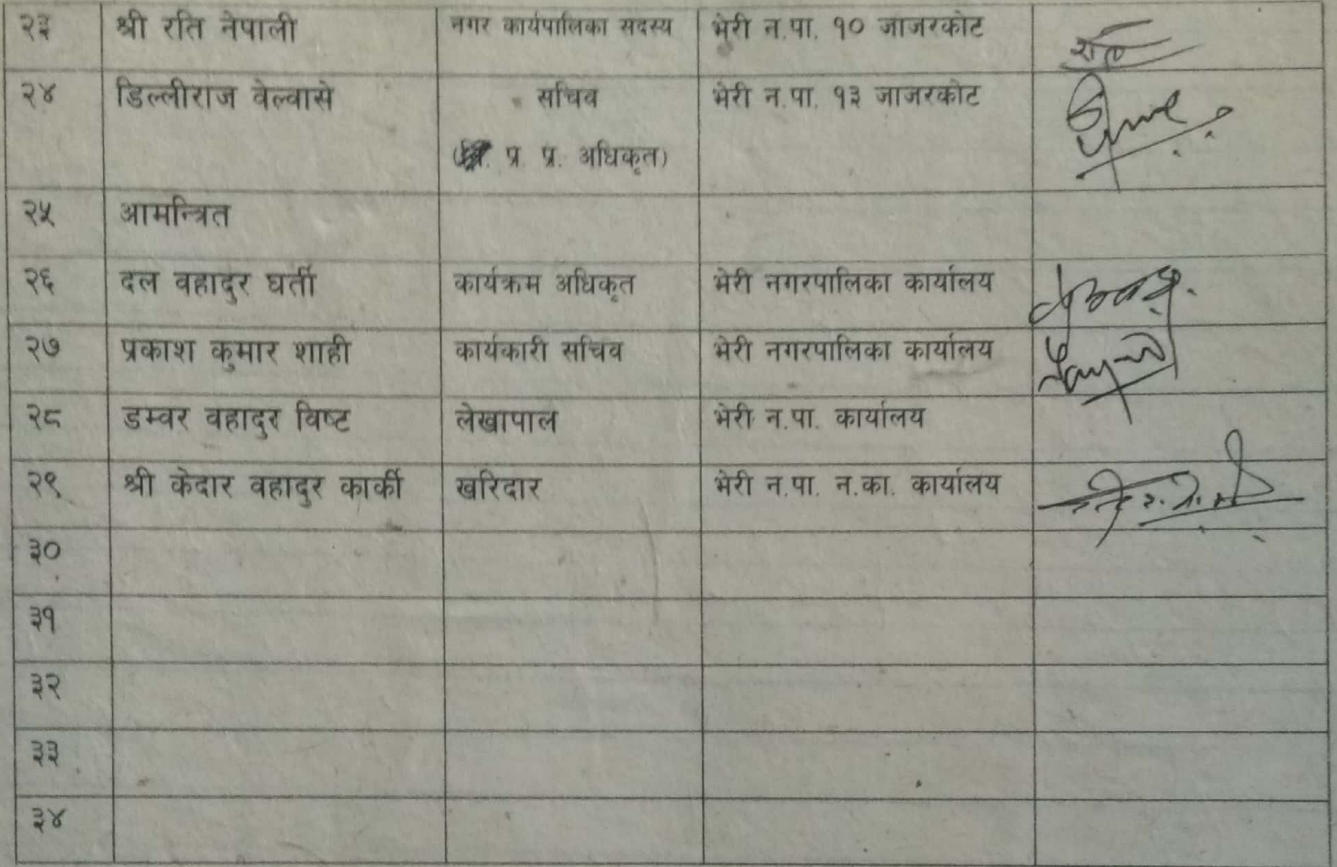 २३ श्री रति नेपाली नगर कार्यपालिका सदस्य भेरी न.पा. १० जाजरकोट
२४ डिल्लीराज वेल्वासे सचिव भेरी न.पा. १३ जाजरकोट
प्र. प्र. अधिकृत)
२५ आमन्त्रित
२६ दल वहादुर घर्ती कार्यक्रम अधिकृत भेरी नगरपालिका कार्यालय
२७ प्रकाश कुमार शाही कार्यकारी सचिव भेरी नगरपालिका कार्यालय
२८ डम्वर वहादुर विष्ट लेखापाल भेरी न.पा. कार्यालय
२९ श्री केदार वहादुर कार्की खरिदार भेरी न.पा. न.का. कार्यालय
३०
३१
३२
३३
३४